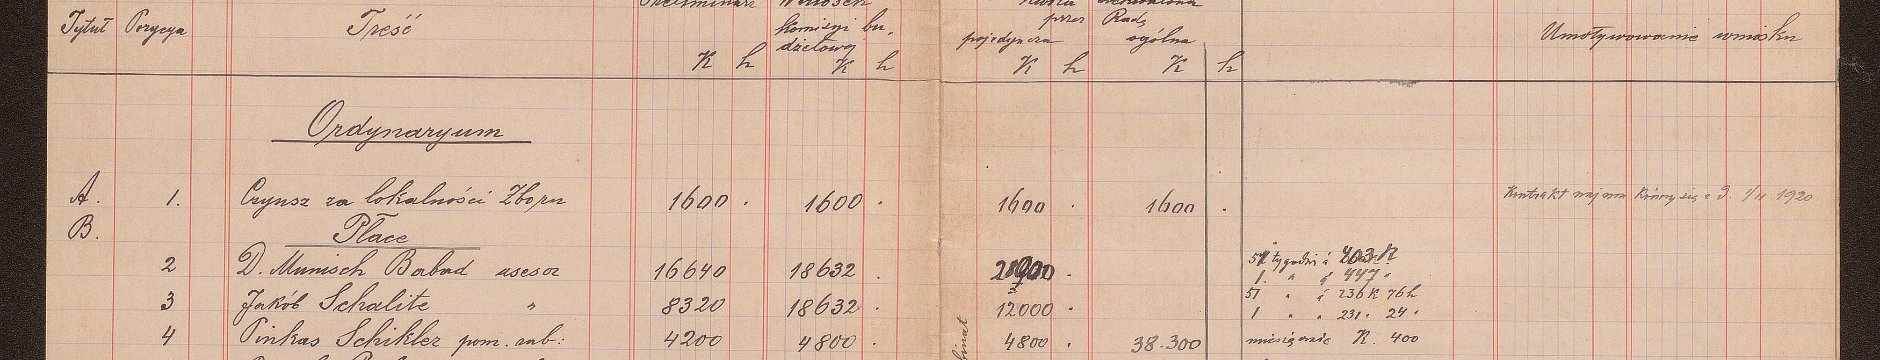 Preliminarz Wniosek
Tytuł Pozycya Treść komisyi bu- przez Radę Umotywowanie wniosku
dżetowej pojedyncza ogólna
K h K h K h K h
Ordynaryum
A. 1. Czynsz za lokalności Zboru 1600 . 1600 . 1600 . 1600 . Kontrakt najmu kończy się z d. 1/11 1920
B. Płace
2 D. Munisch Babad asesor 16640 18632 . . 51 tygodni á 403 K
1. " á 447 "
3 Jakób Schalite " 8320 18632 . 12000 . 51 " á 236 K 76 h
1 " " 231 " 24 "
4 Pinkas Schikler pom. rab: 4200 4800 . 4800 . 38.300 miesięcznie K. 400